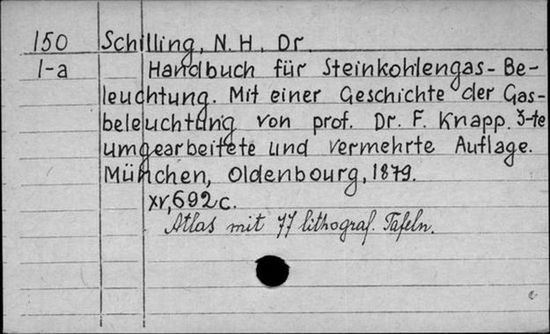 150 Schilling, N. H. Dr.
1-a Handbuch für Steinkohlengas-Be-
leuchtung. Mit einer Geschichte der Gas-
beleuchtung von prof. Dr. F. Knapp. 3-te
umgearbeitete und vermehrte Auflage.
München, Oldenbourg, 1879.
XV, 692 c.
Atlas mit 77 lithograf. Tafeln.